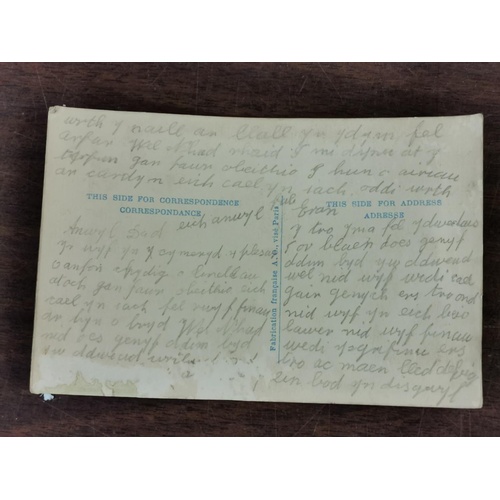 arth y naill ar llall yn ydym fel
arfer Wel Dhad rhaid i mi dynu at y
gan fawr obeithio y hun o eiriau
ar cardyn eich cael yn iach oddi wrth
eich anwyl fab Evan
THIS SIDE FOR CORRESPONDENCE
CORRESPONDANCE
Anwyl Dad
yr wyf fi yn cymeryd y pleser
anfon ychydig o linellau
atoch gan fawr obeithio eich
cael yn iach fel rwyf finau
ar hyn o bryd Wel Dhad
nid oes genyf ddim byd
yw ddweud nid
Fabrication française A. O., visé Paris
THIS SIDE FOR ADDRESS
ADRESSE
y tro yma fel ydwedais
or blaen does genyf
ddim byd yw ddweud
wel nid wyf wedi cael
gair genych ers tro ond
nid wyf yn eich beio
lawer nid wyf finau
wedi ysgrifenu ers
tro ac maen
ein bod yn disgwyl